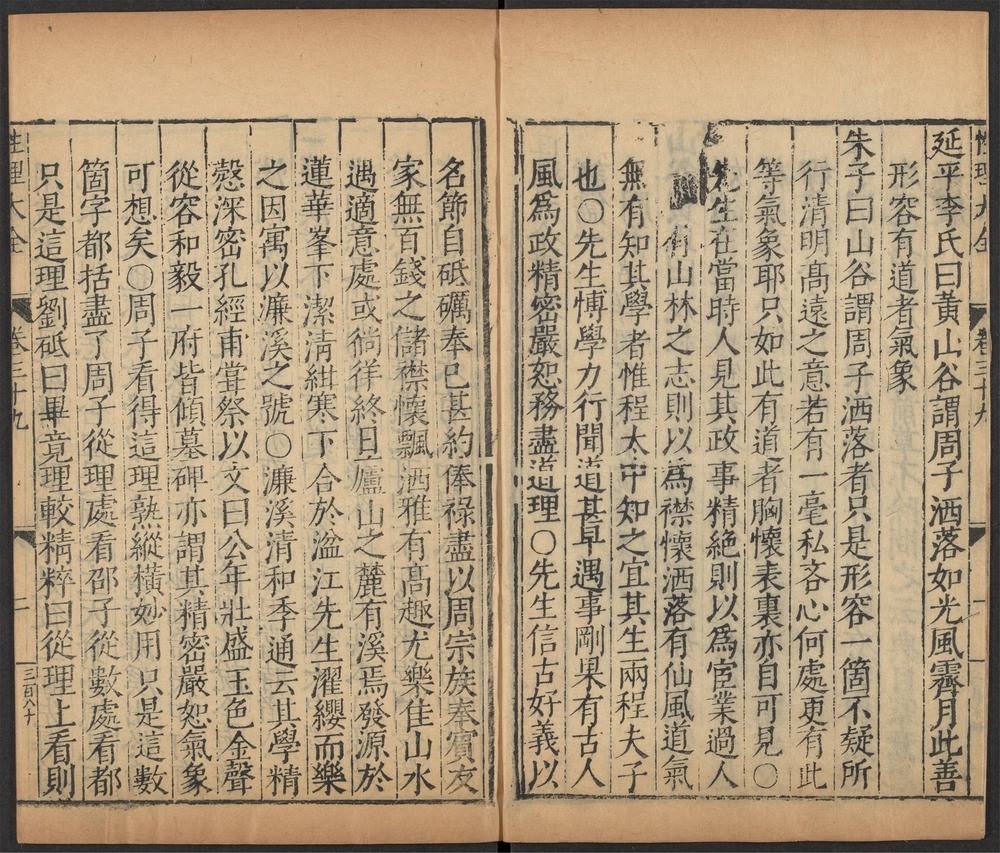 延平李氏曰黃山谷謂周子洒落如光風霽月此善
形容有道者氣象
朱子曰山谷謂周子洒落者只是形容一箇不疑所
行清明高遠之意若有一毫私吝心何處更有此
等氣象耶只如此有道者胸懷表裏亦自可見○
先生在當時人見其政事精絶則以爲宦業過人
有山林之志則以爲襟懷洒落有仙風道氣
無有知其學者惟程太中知之宜其生兩程夫子
也○先生博學力行聞道甚早遇事剛果有古人
風爲政精密嚴恕務盡道理○先生信古好義以
名節自砥礪奉己甚約俸祿盡以周宗族奉賓友
家無百錢之儲襟懷飄洒雅有高趣尤樂佳山水
遇適意處或徜徉終日廬山之麓有溪焉發源於
蓮華峯下潔清紺寒下合於湓江先生濯纓而樂
之因寓以濂溪之號○濂溪清和季通云其學精
慤深密孔經甫甞祭以文曰公年壯盛玉色金聲
從容和毅一府皆傾墓碑亦謂其精密嚴恕氣象
可想矣○周子看得這理熟縱橫妙用只是這數
箇字都括盡了周子從理處看邵子從數處看都
只是這理劉砥曰畢竟理較精粹曰從理上看則
性理大全
卷三十九
二
三百八十